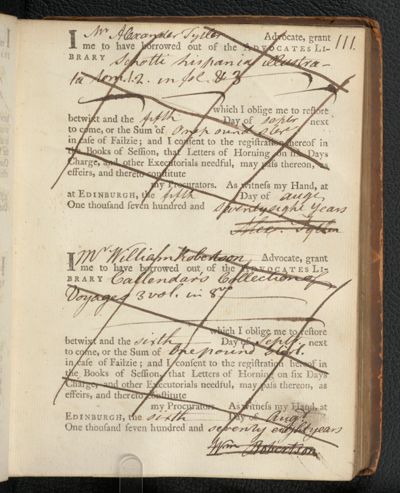 111.
I Mr Alexander Tytler Advocate, grant
me to have borrowed out of the ADVOCATES LI-
BRARY Scotti hispania illustra-
ta tom. 1. 2. in fol. & 3
which I oblige me to restore
betwixt and the fifth Day of Septr next
to come, or the Sum of One pound sterl
in case of Failzie; and I consent to the registration hereof in
the Books of Session, that Letters of Horning on six Days
Charge, and other Executorials needful, may pass thereon, as
effeirs, and thereto constitute
my Procurators. As witness my Hand, at
at EDINBURGH, the fifth Day of augt
One thousand seven hundred and seventy eight Years
Alexr. Tytler
I Mr William Robertson Advocate, grant
me to have borrowed out of the ADVOCATES LI-
BRARY Callendars Collection of
Voyages 3 vol. in 8vo
which I oblige me to restore
betwixt and the sixth Day of Septr. next
to come, or the Sum of One pound sterl.
in case of Failzie; and I consent to the registration hereof in
the Books of Session, that Letters of Horning on six Days
Charge, and other Executorials needful, may pass thereon, as
effeirs, and thereto constitute
my Procurators. As witness my Hand, at
EDINBURGH, the sixth Day of augt
One thousand seven hundred and seventy eight years
Wm Robertson